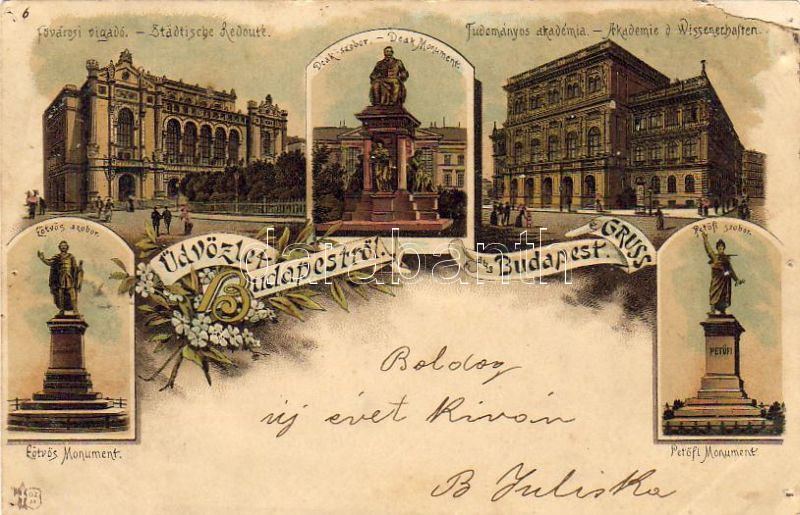 6
Fővárosi vigadó. – Städtische Redoute.
Deák-szobor. – Deak Monument.
Tudományos akadémia. – Akademie d Wissenschaften.
Eötvös szobor.
Petőfi szobor.
Üdvözlet Budapestről.
GRUSS
aus BUDAPEST.
darabanth
PETŐFI
Boldog
új évet kíván
B Juliska
Eötvös Monument.
Petőfi Monument